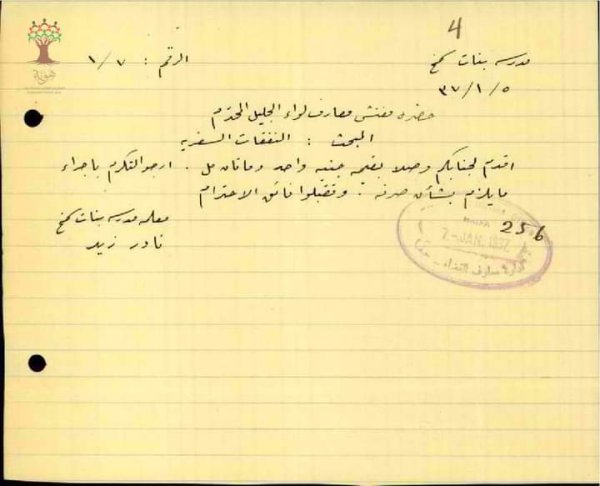 4
مدرسة بنات سمخ
الرقم : ١/٧
٣٧/١/٥
حضرة مفتش معارف لواء الجليل المحترم
المبحث : النفقات السفرية
اقدم لجنابكم وصلا بقيمة جنيه واحد ومائتان مل . ارجو التكرم باجراء
مايلزم بشأن صرفه . وتقبلوا فائق الاحترام
معلمة مدرسة بنات سمخ
نادر زيد
256
HAIFA
7-JAN.1937
ادارة معارف اللواء